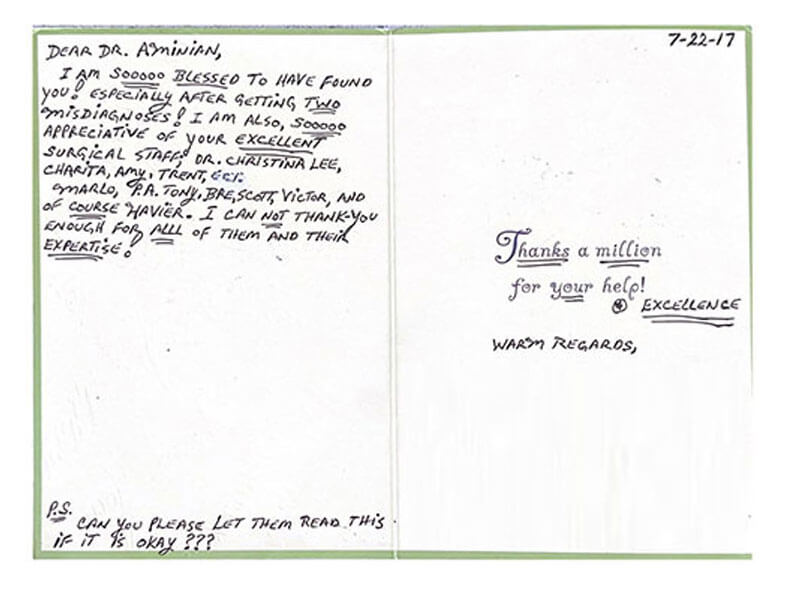 DEAR DR. AMINIAN,
I AM SOOOOO BLESSED TO HAVE FOUND
YOU! ESPECIALLY AFTER GETTING TWO
MISDIAGNOSES! I AM ALSO, SOOOOO
APPRECIATIVE OF YOUR EXCELLENT
SURGICAL STAFF, DR. CHRISTINA LEE,
CHARITA, AMY, TRENT, ECT.
MARLO, P.A. TONY, BRE, SCOTT, VICTOR, AND
OF COURSE HAVIER. I CAN NOT THANK-YOU
ENOUGH FOR ALLL OF THEM AND THEIR
EXPERTISE!
P.S.
CAN YOU PLEASE LET THEM READ THIS
IF IT IS OKAY ???
7-22-17
Thanks a million
for your help!
EXCELLENCE
WARM REGARDS,